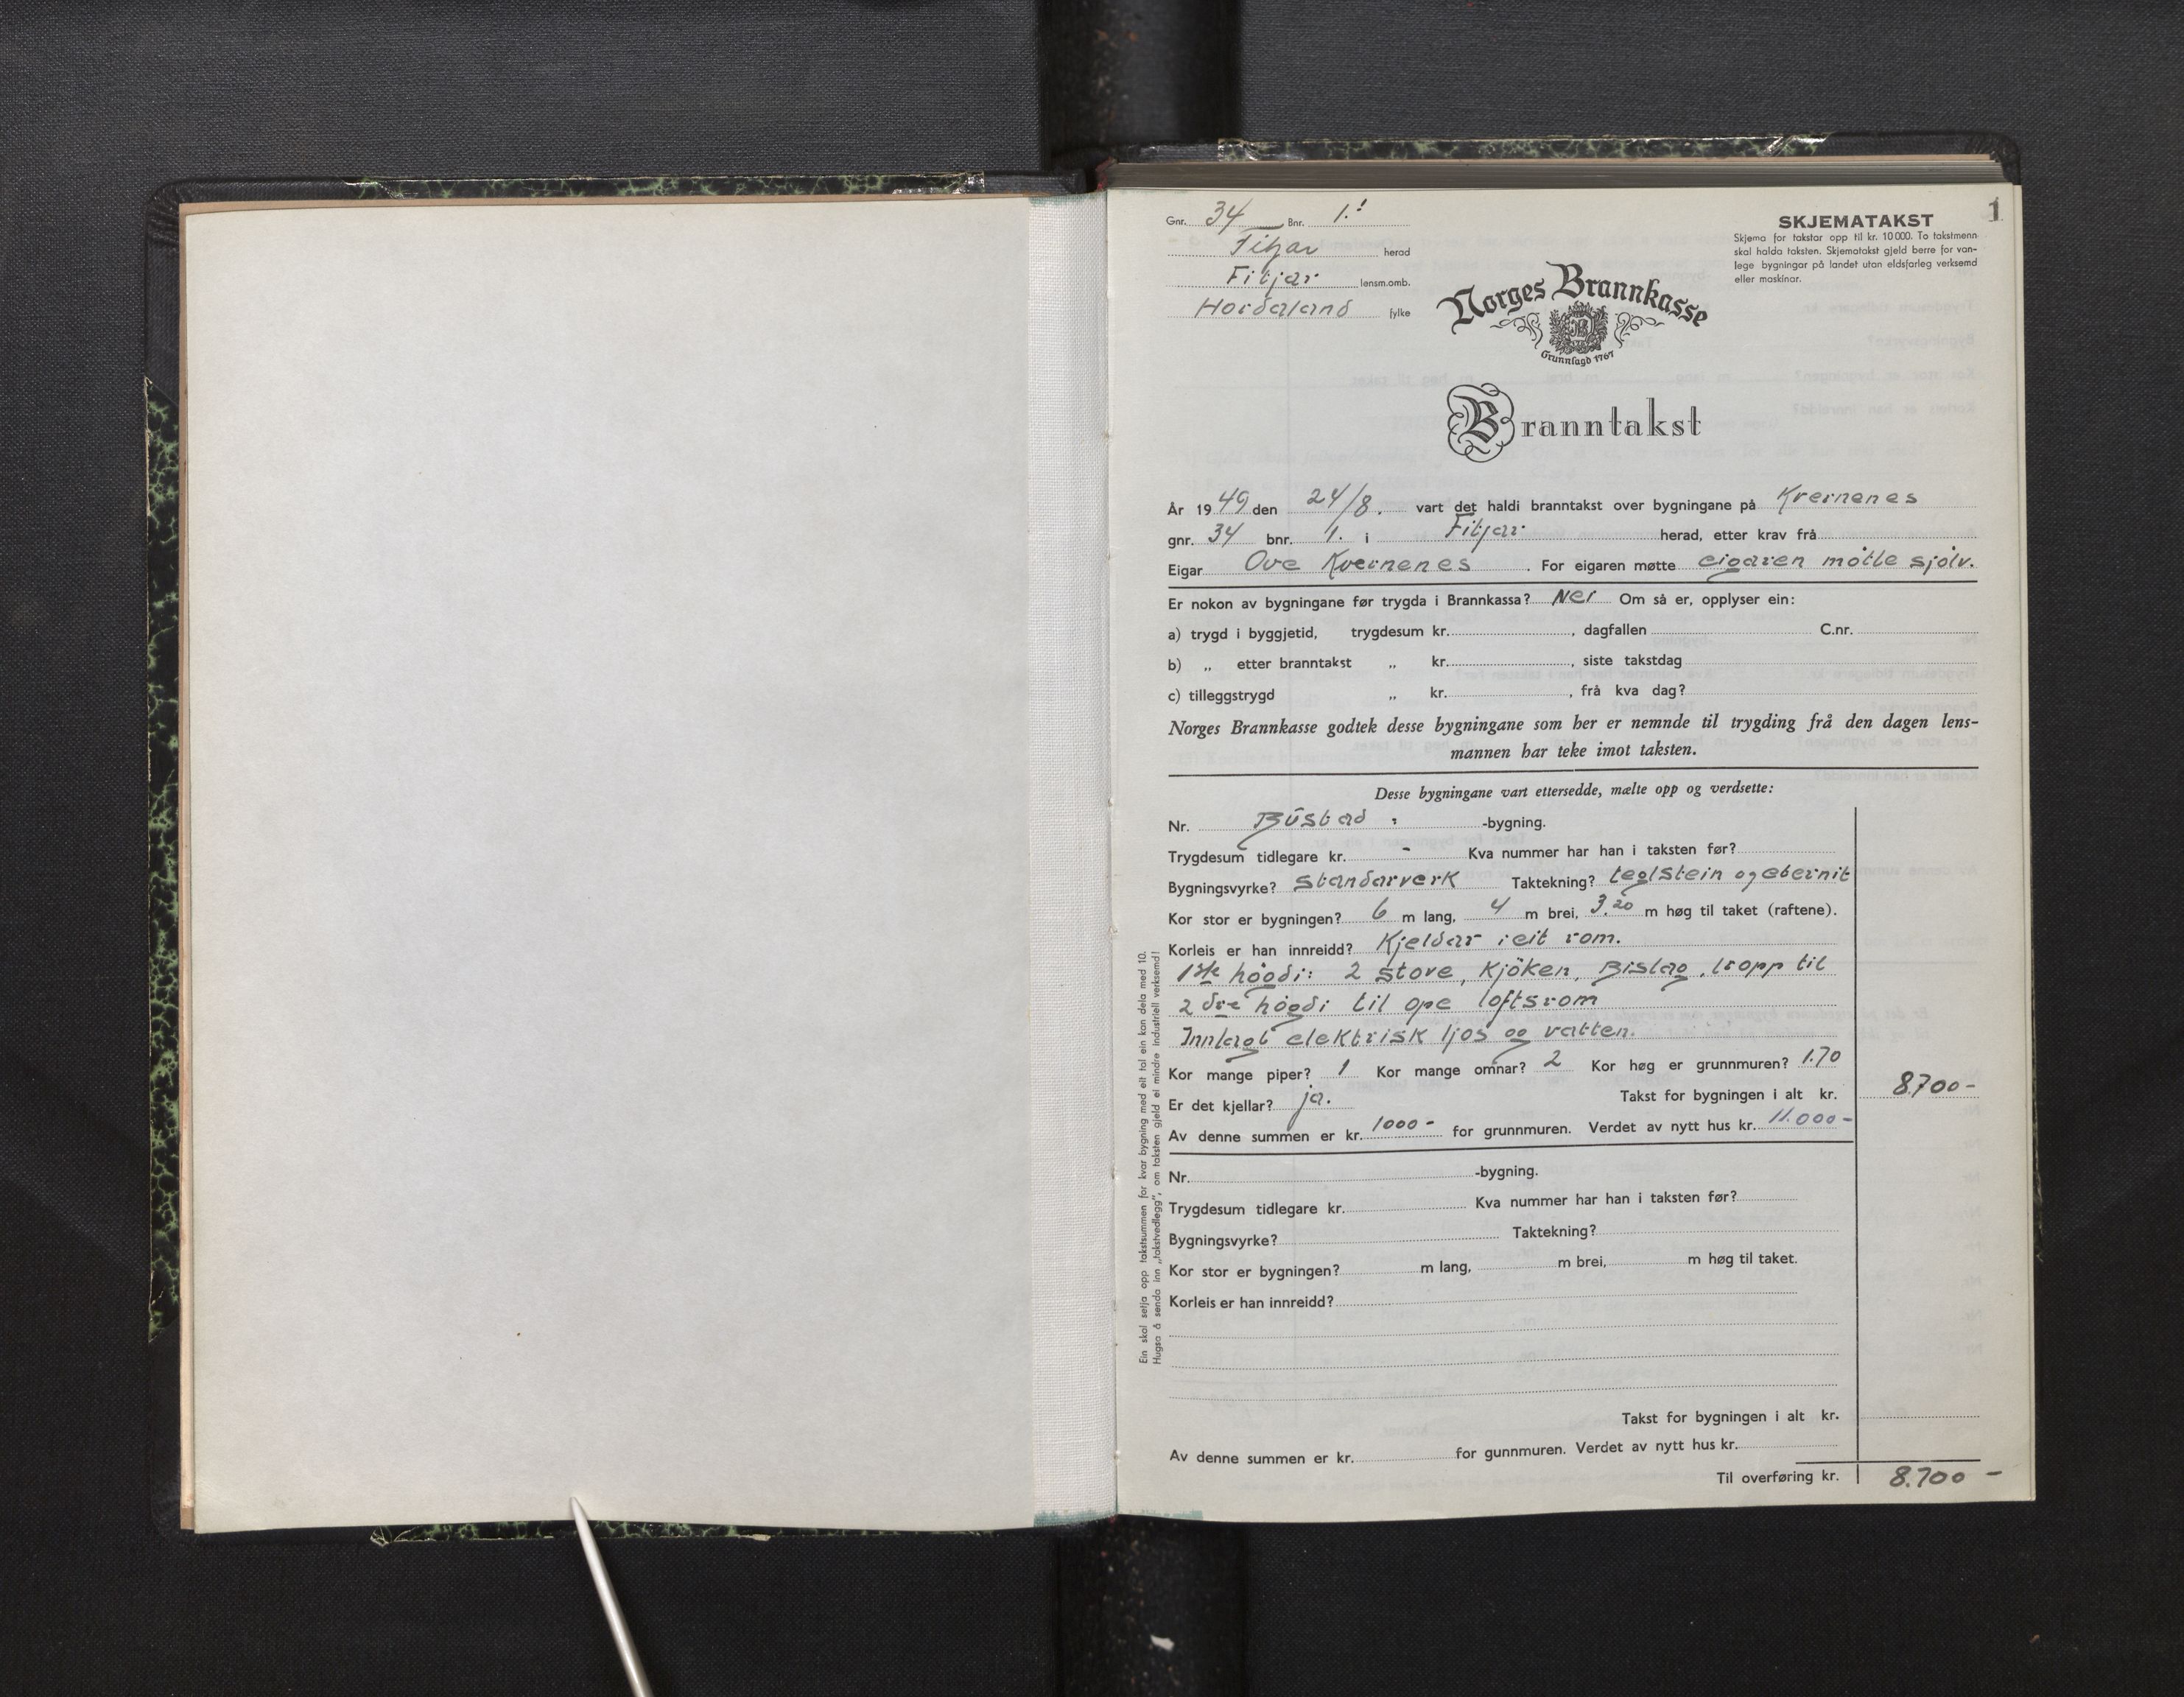 1
Gnr. 34 Bnr. 1.!
Fitjar herad
Fitjar lensm.omb.
Hordaland fylke
SKJEMATAKST
Skjema for takstar opp til kr. 10 000. To takstmenn
skal halda taksten. Skjematakst gjeld berre for van-
lege bygningar på landet utan eldsfarleg verksemd
eller maskinar.
Norges Brannkasse
Grunnlagd 1767
Branntakst
År 1949 den 24/8. vart det haldi branntakst over bygningane på Kvernenes
gnr. 34 bnr. 1. i Fitjar herad, etter krav frå
Eigar Ove Kvernenes . For eigaren møtte eigaren møtte sjølv.
Er nokon av bygningane før trygda i Brannkassa? Nei Om så er, opplyser ein:
a) trygd i byggjetid, trygdesum kr. , dagfallen C.nr.
b) „ etter branntakst „ kr. , siste takstdag
c) tilleggstrygd „ kr. , frå kva dag?
Norges Brannkasse godtek desse bygningane som her er nemnde til trygding frå den dagen lens-
mannen har teke imot taksten.
Desse bygningane vart ettersedde, mælte opp og verdsette:
Nr. Bustad : -bygning.
Trygdesum tidlegare kr. - Kva nummer har han i taksten før?
Bygningsvyrke? standarverk Taktekning? teglstein og eternit
Kor stor er bygningen? 6 m lang, 4 m brei, 3.20 m høg til taket (raftene).
Korleis er han innreidd? Kjeldar i eit rom.
1ste høgdi: 2 stove, Kjøken, Bislag, tropp til
2dre høgdi til ope loftsrom
Innlagt elektrisk ljos og vatten.
Kor mange piper? 1 Kor mange omnar? 2 Kor høg er grunnmuren? 1.70
Er det kjellar? ja. Takst for bygningen i alt kr. 8.700-
Av denne summen er kr. 1000- for grunnmuren. Verdet av nytt hus kr. 11.000-
Nr. -bygning.
Trygdesum tidlegare kr. Kva nummer har han i taksten før?
Bygningsvyrke? Taktekning?
Kor stor er bygningen? m lang, m brei, m høg til taket.
Korleis er han innreidd?
Takst for bygningen i alt kr.
Av denne summen er kr. for gunnmuren. Verdet av nytt hus kr.
Til overføring kr. 8.700 -
Ein skal setja opp takstsummen for kvar bygning med eit tal ein kan dela med 10.
Hugsa å senda inn „takstvedlegg", om taksten gjeld ei mindre industriell verksemd!